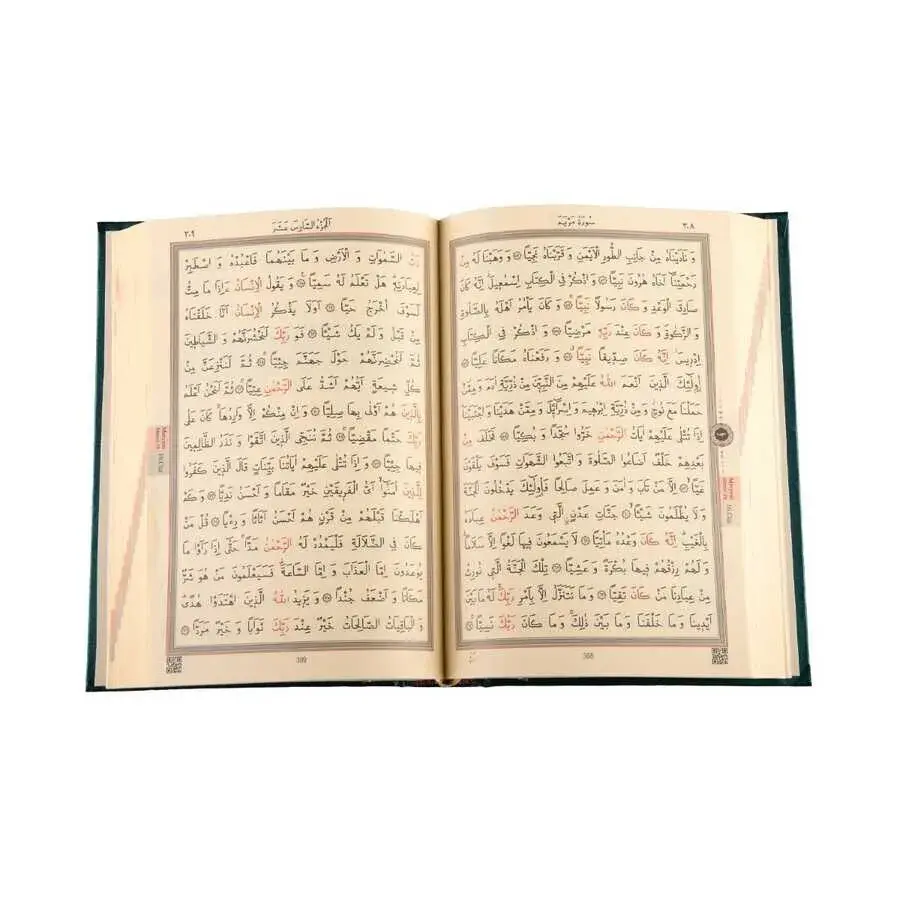 سُورَةُ مَرْيَمَ ٣٠٨
وَنَادَيْنَاهُ مِنْ جَانِبِ الطُّورِ الْاَيْمَنِ وَقَرَّبْنَاهُ نَجِيًّا ﴿٥٢﴾ وَوَهَبْنَا لَهُ مِنْ
رَحْمَتِنَا اَخَاهُ هٰرُونَ نَبِيًّا ﴿٥٣﴾ وَاذْكُرْ فِي الْكِتَابِ اِسْمٰعِيلَ اِنَّهُ كَانَ
صَادِقَ الْوَعْدِ وَكَانَ رَسُولًا نَبِيًّا ﴿٥٤﴾ وَكَانَ يَأْمُرُ اَهْلَهُ بِالصَّلٰوةِ
وَالزَّكٰوةِ وَكَانَ عِنْدَ رَبِّهِ مَرْضِيًّا ﴿٥٥﴾ وَاذْكُرْ فِي الْكِتَابِ
اِدْرِيسَ اِنَّهُ كَانَ صِدِّيقًا نَبِيًّا ﴿٥٦﴾ وَرَفَعْنَاهُ مَكَانًا عَلِيًّا ﴿٥٧﴾
اُولٰئِكَ الَّذِينَ اَنْعَمَ اللّٰهُ عَلَيْهِمْ مِنَ النَّبِيّنَ مِنْ ذُرِّيَّةِ اٰدَمَ وَمِمَّنْ
حَمَلْنَا مَعَ نُوحٍ وَمِنْ ذُرِّيَّةِ اِبْرٰهِيمَ وَاِسْرَائِلَ وَمِمَّنْ هَدَيْنَا وَاجْتَبَيْنَا
اِذَا تُتْلٰى عَلَيْهِمْ اٰيَاتُ الرَّحْمٰنِ خَرُّوا سُجَّدًا وَبُكِيًّا ﴿٥٨﴾ فَخَلَفَ مِنْ
بَعْدِهِمْ خَلْفٌ اَضَاعُوا الصَّلٰوةَ وَاتَّبَعُوا الشَّهَوَاتِ فَسَوْفَ يَلْقَوْنَ
غَيًّا ﴿٥٩﴾ اِلَّا مَنْ تَابَ وَاٰمَنَ وَعَمِلَ صَالِحًا فَاُولٰئِكَ يَدْخُلُونَ الْجَنَّةَ
وَلَا يُظْلَمُونَ شَيْئًا ﴿٦٠﴾ جَنَّاتِ عَدْنٍ الَّتِي وَعَدَ الرَّحْمٰنُ عِبَادَهُ
بِالْغَيْبِ اِنَّهُ كَانَ وَعْدُهُ مَأْتِيًّا ﴿٦١﴾ لَا يَسْمَعُونَ فِيهَا لَغْوًا اِلَّا سَلَامًا
وَلَهُمْ رِزْقُهُمْ فِيهَا بُكْرَةً وَعَشِيًّا ﴿٦٢﴾ تِلْكَ الْجَنَّةُ الَّتِي نُورِثُ
مِنْ عِبَادِنَا مَنْ كَانَ تَقِيًّا ﴿٦٣﴾ وَمَا نَتَنَزَّلُ اِلَّا بِاَمْرِ رَبِّكَ لَهُ مَا بَيْنَ
اَيْدِينَا وَمَا خَلْفَنَا وَمَا بَيْنَ ذٰلِكَ وَمَا كَانَ رَبُّكَ نَسِيًّا ﴿٦٤﴾
308
٣٠٩ اَلْجُزْءُ السَّادِسَ عَشَرَ
رَبُّ السَّمٰوَاتِ وَالْاَرْضِ وَمَا بَيْنَهُمَا فَاعْبُدْهُ وَاصْطَبِرْ
لِعِبَادَتِهِ هَلْ تَعْلَمُ لَهُ سَمِيًّا ﴿٦٥﴾ وَيَقُولُ الْاِنْسَانُ ءَاِذَا مَا مِتُّ
لَسَوْفَ اُخْرَجُ حَيًّا ﴿٦٦﴾ اَوَلَا يَذْكُرُ الْاِنْسَانُ اَنَّا خَلَقْنَاهُ
مِنْ قَبْلُ وَلَمْ يَكُ شَيْئًا ﴿٦٧﴾ فَوَ رَبِّكَ لَنَحْشُرَنَّهُمْ وَالشَّيَاطِينَ
ثُمَّ لَنُحْضِرَنَّهُمْ حَوْلَ جَهَنَّمَ جِثِيًّا ﴿٦٨﴾ ثُمَّ لَنَنْزِعَنَّ مِنْ
كُلِّ شِيعَةٍ اَيُّهُمْ اَشَدُّ عَلَى الرَّحْمٰنِ عِتِيًّا ﴿٦٩﴾ ثُمَّ لَنَحْنُ اَعْلَمُ
بِالَّذِينَ هُمْ اَوْلٰى بِهَا صِلِيًّا ﴿٧٠﴾ وَاِنْ مِنْكُمْ اِلَّا وَارِدُهَا كَانَ عَلٰى
رَبِّكَ حَتْمًا مَقْضِيًّا ﴿٧١﴾ ثُمَّ نُنَجِّي الَّذِينَ اتَّقَوْا وَنَذَرُ الظَّالِمِينَ
فِيهَا جِثِيًّا ﴿٧٢﴾ وَاِذَا تُتْلٰى عَلَيْهِمْ اٰيَاتُنَا بَيِّنَاتٍ قَالَ الَّذِينَ كَفَرُوا
لِلَّذِينَ اٰمَنُوا اَيُّ الْفَرِيقَيْنِ خَيْرٌ مَقَامًا وَاَحْسَنُ نَدِيًّا ﴿٧٣﴾ وَكَمْ
اَهْلَكْنَا قَبْلَهُمْ مِنْ قَرْنٍ هُمْ اَحْسَنُ اَثَاثًا وَرِءْيًا ﴿٧٤﴾ قُلْ مَنْ
كَانَ فِي الضَّلَالَةِ فَلْيَمْدُدْ لَهُ الرَّحْمٰنُ مَدًّا حَتّٰى اِذَا رَاَوْا مَا
يُوعَدُونَ اِمَّا الْعَذَابَ وَاِمَّا السَّاعَةَ فَسَيَعْلَمُونَ مَنْ هُوَ شَرٌّ
مَكَانًا وَاَضْعَفُ جُنْدًا ﴿٧٥﴾ وَيَزِيدُ اللّٰهُ الَّذِينَ اهْتَدَوْا هُدًى
وَالْبَاقِيَاتُ الصَّالِحَاتُ خَيْرٌ عِنْدَ رَبِّكَ ثَوَابًا وَخَيْرٌ مَرَدًّا ﴿٧٦﴾
309